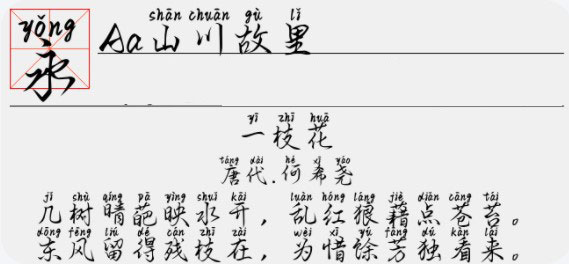 yǒng
永
shān chuān gù lǐ
Aa山川故里
yī zhī huā
一枝花
táng dài hé xī yáo
唐代.何希尧
jǐ shù qíng pā yìng shuǐ kāi luàn hóng láng jiè diǎn cāng tái
几树晴葩映水开，乱红狼藉点苍苔。
dōng fēng liú dé cán zhī zài wèi xī yú fāng dú kàn lái
东风留得残枝在，为惜馀芳独看来。